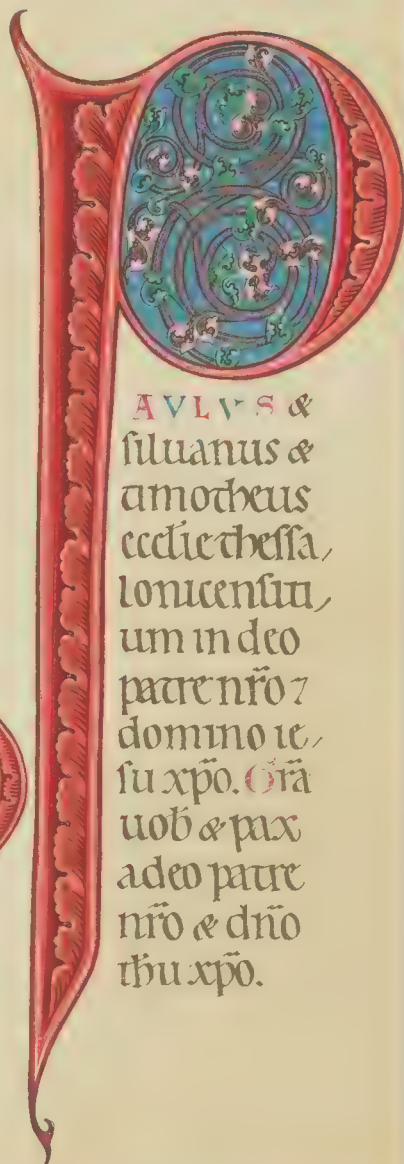 PAVLVS &
siluanus &
timotheus
ecclie thessa/
lonicensiti/
um in deo
patre nr̃o ⁊
domino ie/
su xp̃o. Gr̃a
uob̃ & pax
a deo patre
nr̃o & dño
ihu xp̃o.